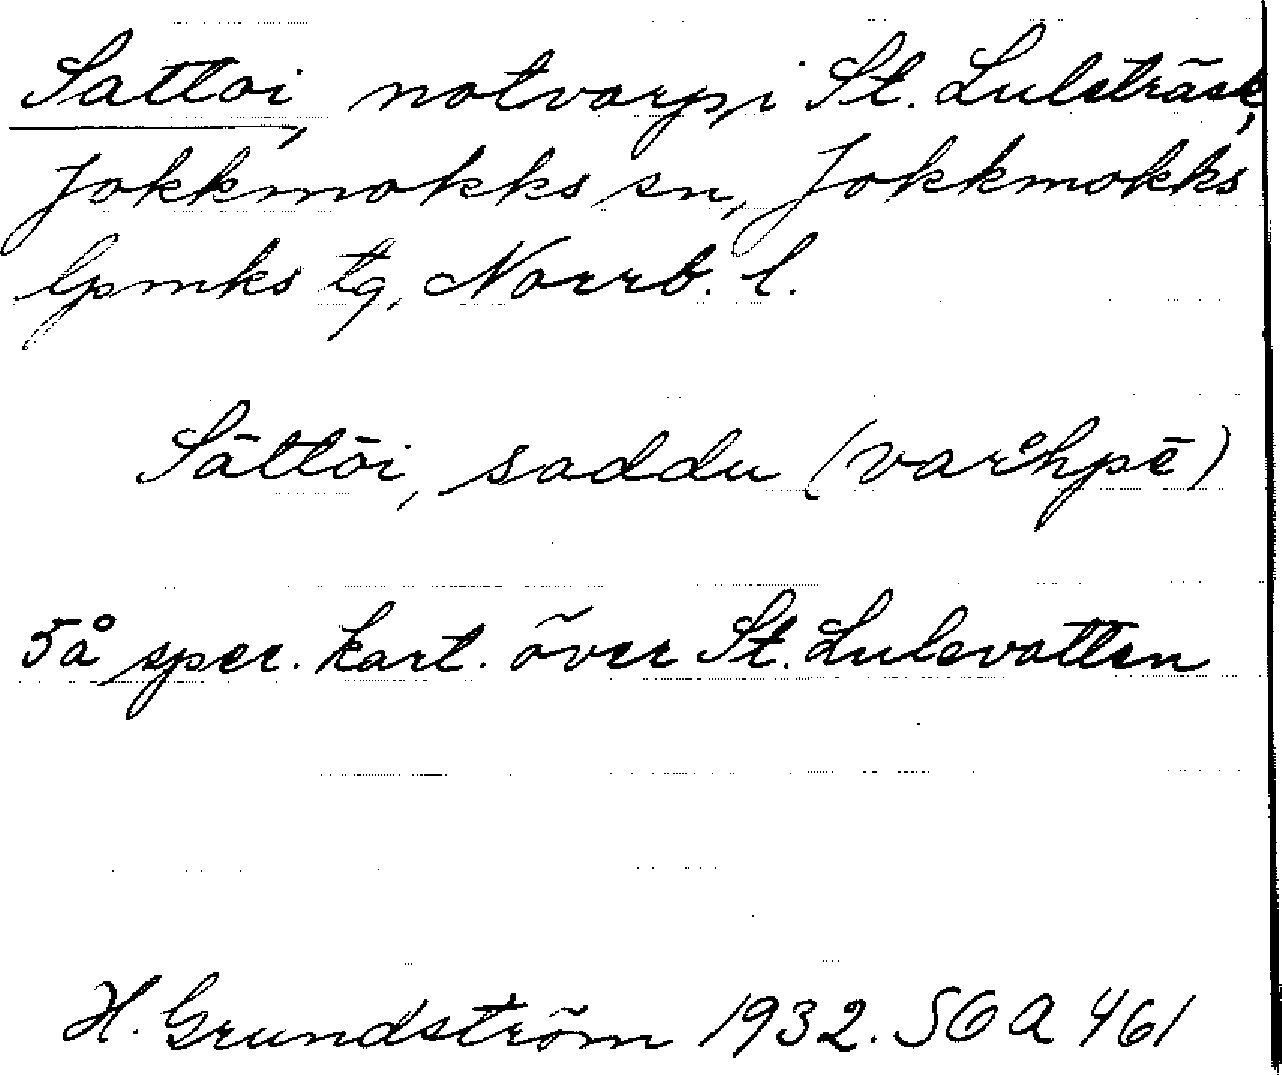 Sattoi, notvarp i St. Lulträsk,
Jokkmokks sn, Jokkmokks
lpmks tg, Norrb. l.
Sāttōi, saddu (var̊hpē)
5å sper. kart. över St. Lulevatten
H. Grundström 1932. SOA 461